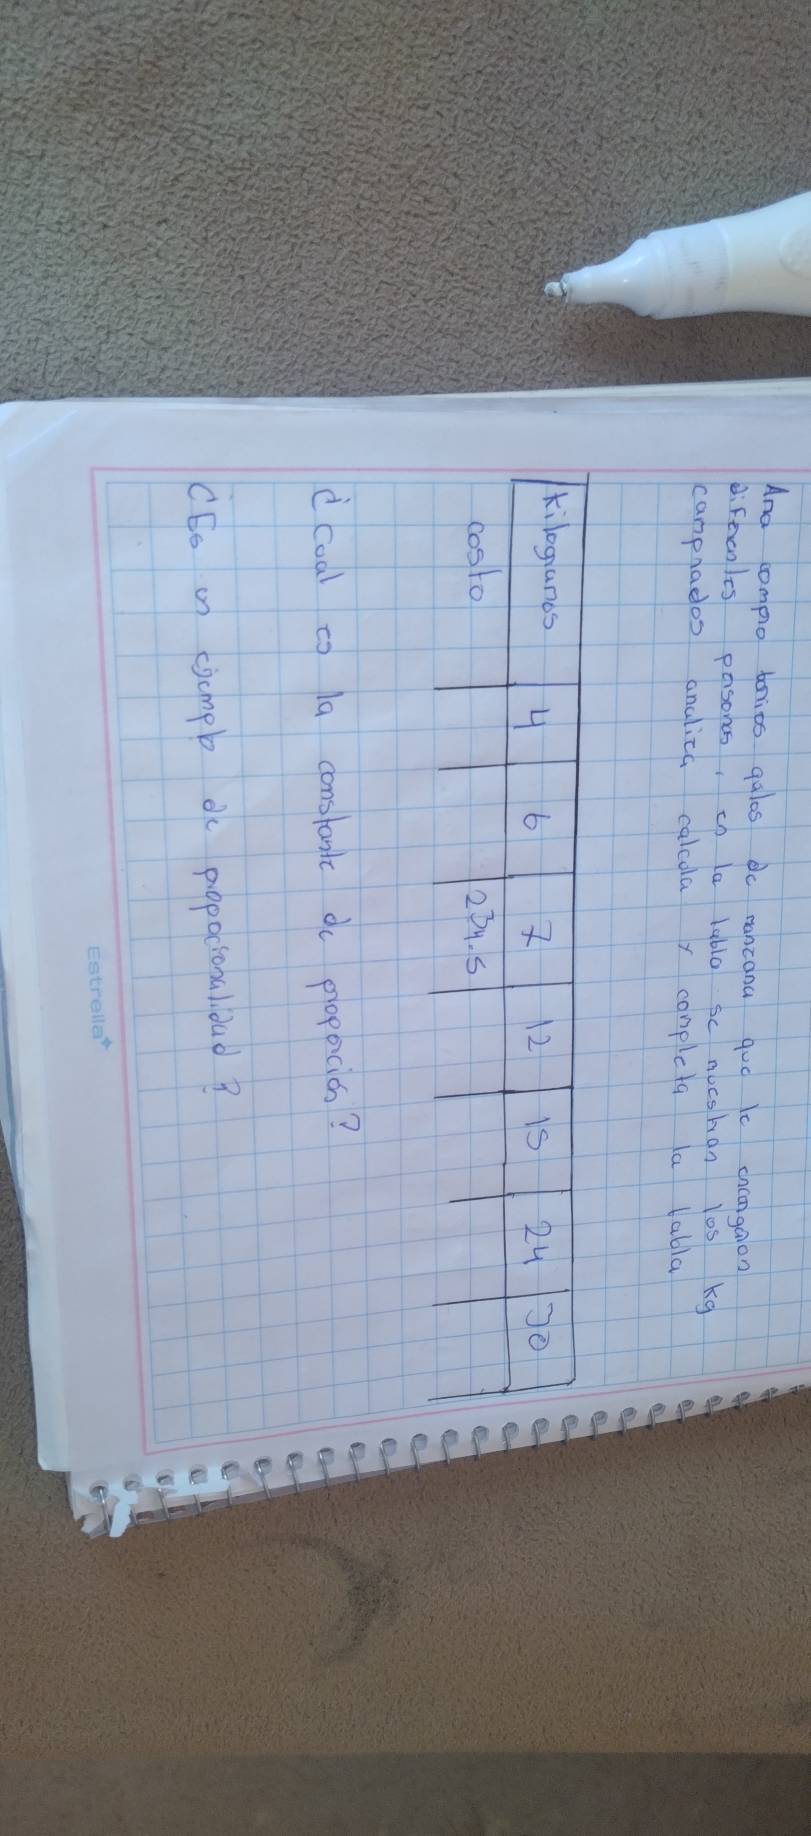 Ana compro barios quilos de manzana que le encargaron
diferentes personas, en la tabla se muestran los kg
comprados analiza calcula y completa la tabla
Kilogramos 4 6 7 12 15 24 30
costo 234.5
¿Cual es la constante de proporción?
¿Es un ejemplo de proporcionalidad?
Estrella